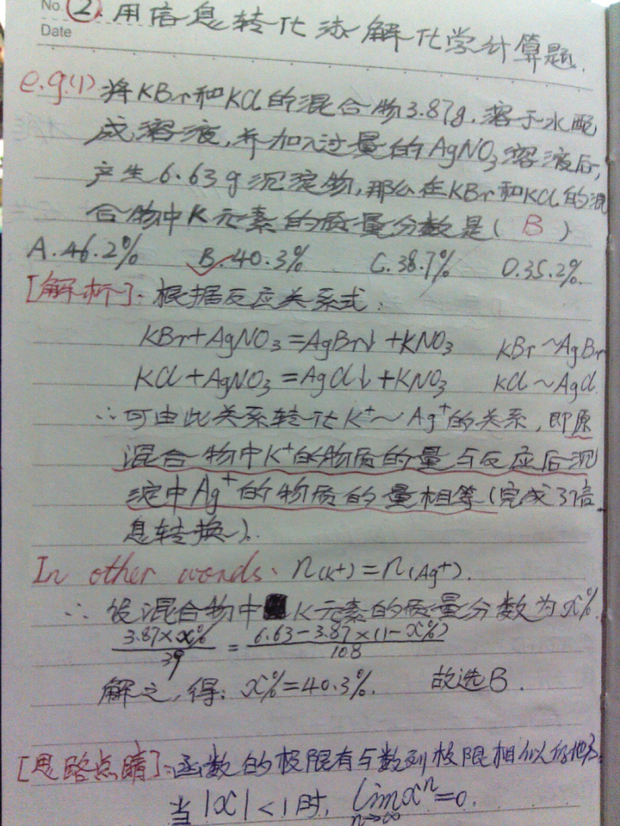 No. ② 用信息转化法解化学计算题.
Date
e.g.(1) 将KBr和KCl的混合物3.87g,溶于水配
成溶液,并加入过量的AgNO₃溶液后,
产生6.63g沉淀物,那么在KBr和KCl的混
合物中K元素的质量分数是( B )
A.46.2% B.40.3% C.38.7% D.35.2%.
[解析]: 根据反应关系式:
KBr+AgNO₃=AgBr↓+KNO₃ KBr~AgBr
KCl+AgNO₃=AgCl↓+KNO₃ KCl~AgCl
∴可由此关系转化K⁺~Ag⁺的关系,即原
混合物中K⁺的物质的量与反应后沉
淀中Ag⁺的物质的量相等(完成了信
息转换).
In other words. n(K⁺)=n(Ag⁺).
∴设混合物中K元素的质量分数为x%.
3.87×x%/39 = 6.63-3.87×(1-x%)/108
解之,得: x%=40.3%. 故选B.
[思路点睛]:函数的极限有与数列极限相似的地方,
当|x|<1时, lim n→∞ xⁿ=0.